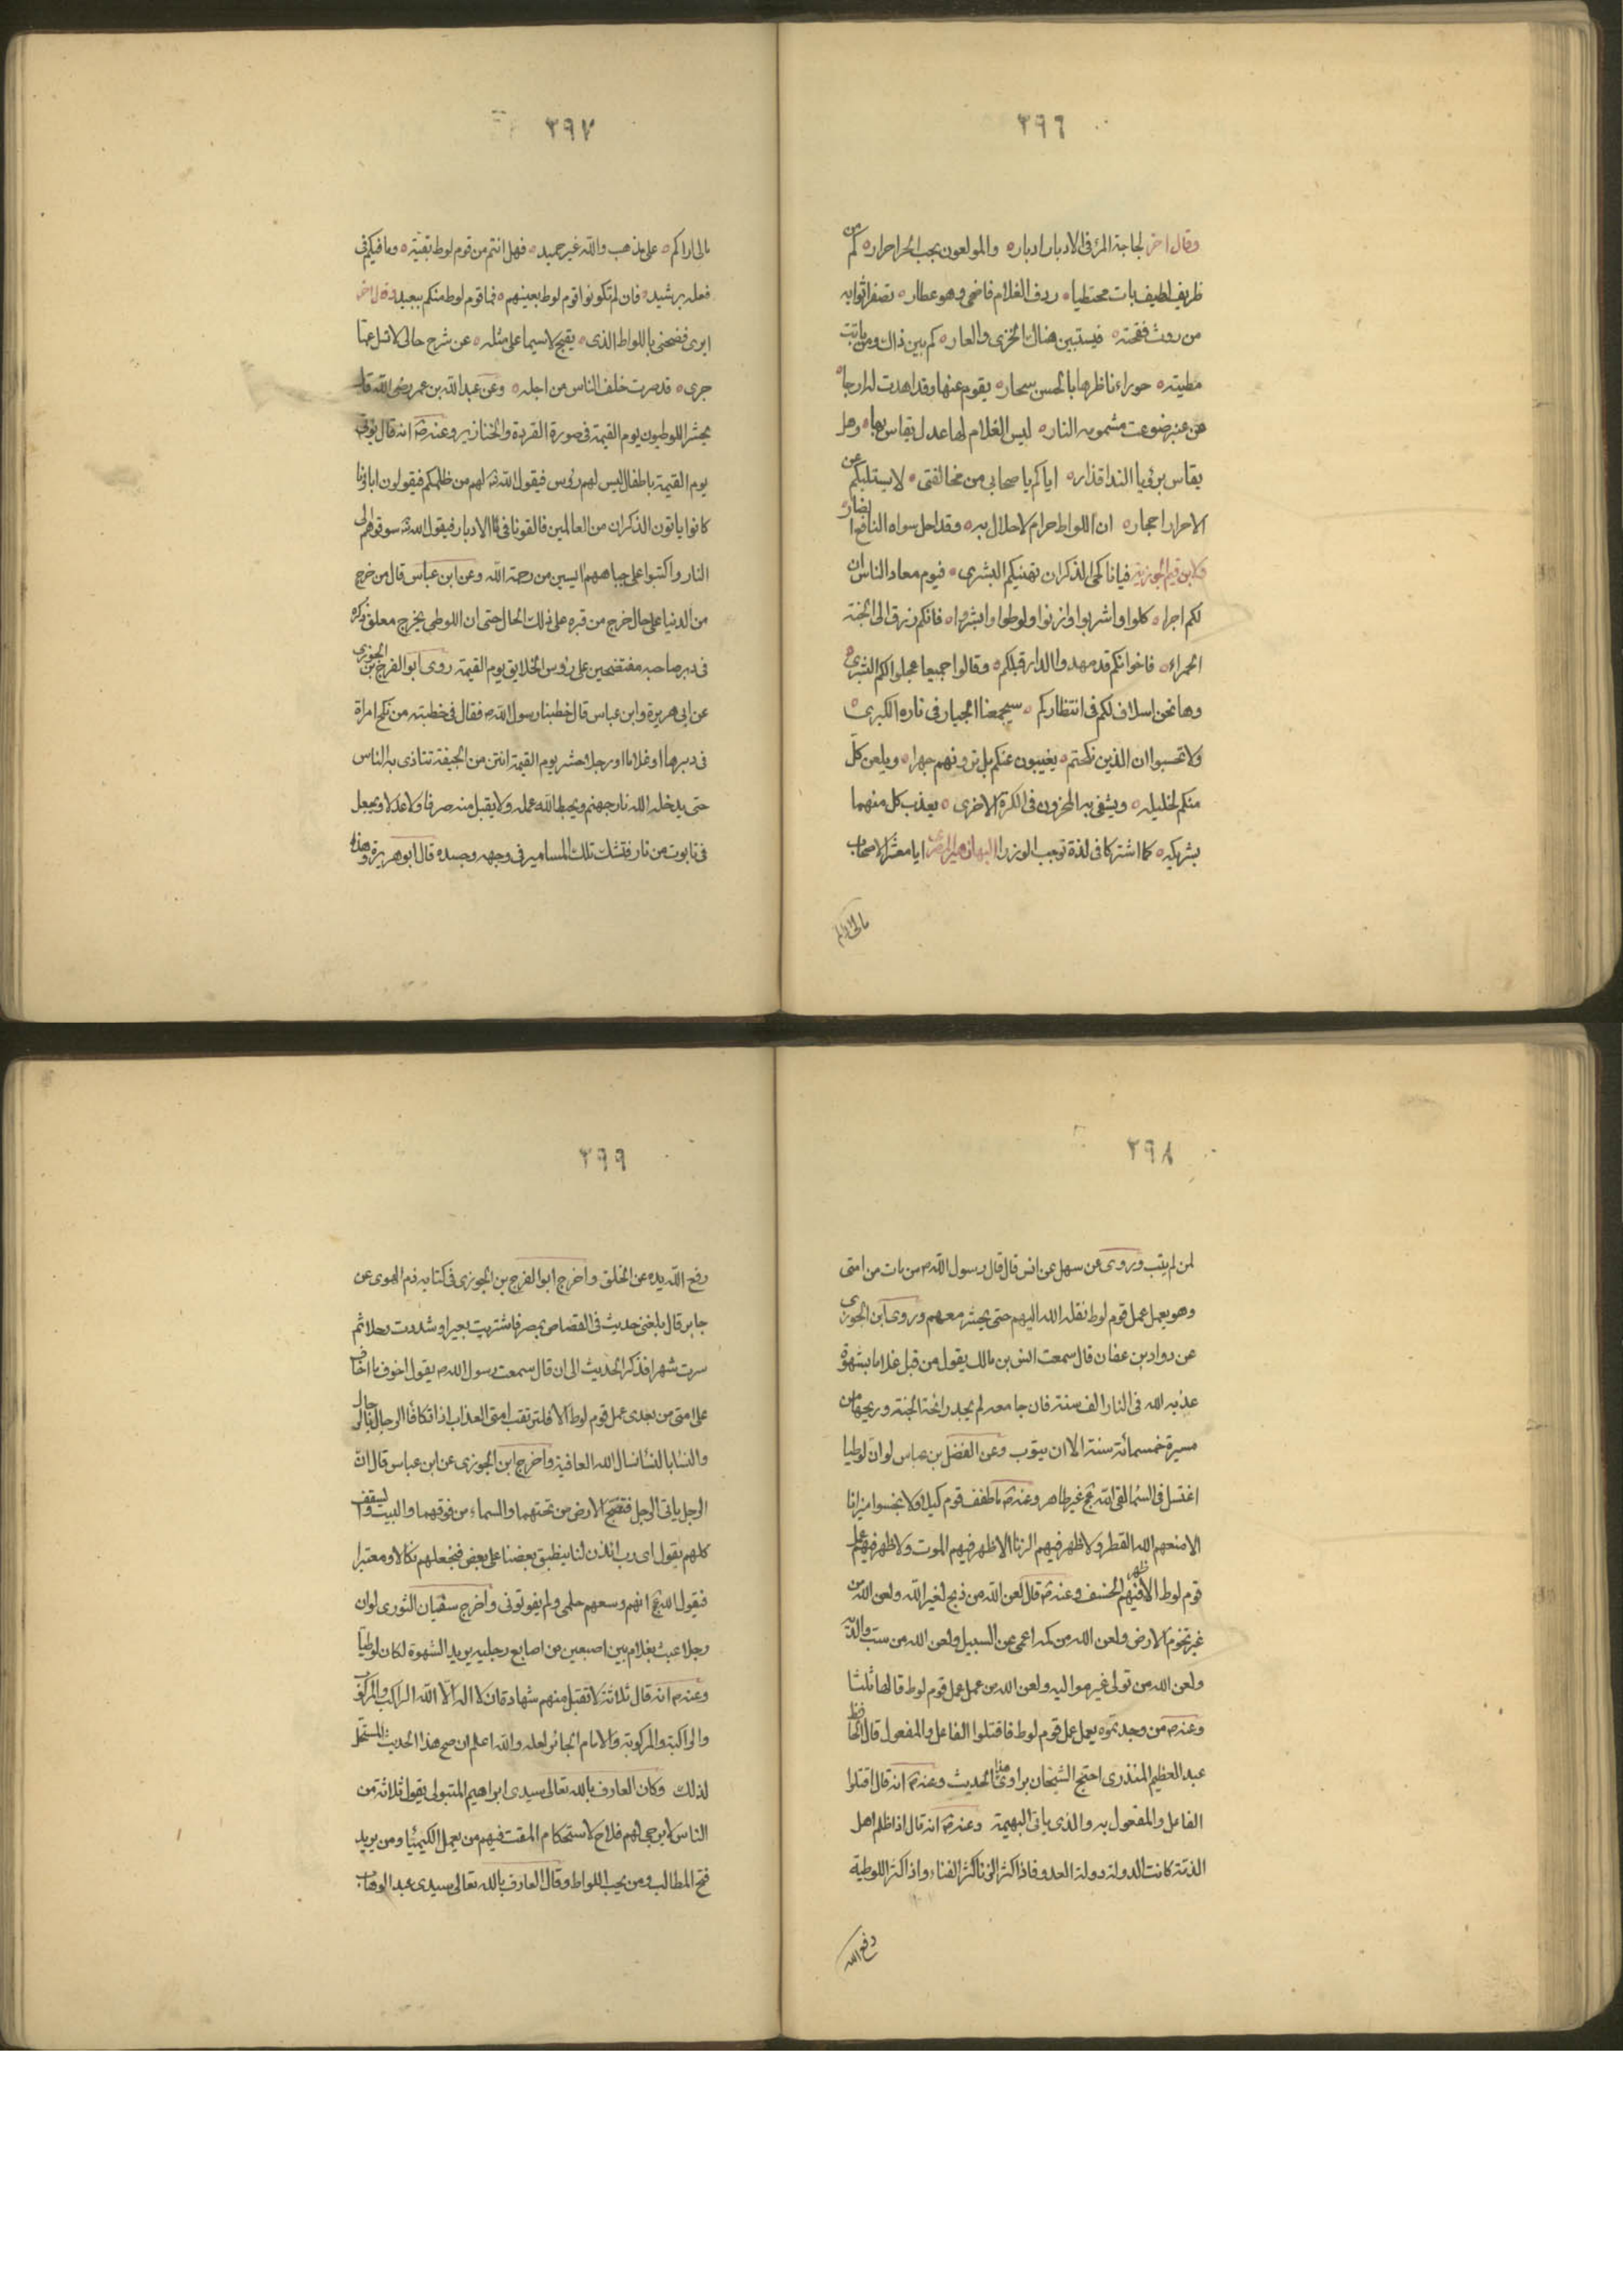 ٣٩٦
وقال اخر لحاجة المرء فى الادبار ادباره والمولعون بحب الحر احراره كم من
ظريف لطيف بات ممتطيا ردف الغلام فاضحى وهو عطار تصفر اثوابه
من روث فقحته فيستبين هناك الخزى والعاره كم بين ذاك ومن باتت
مطيته حوراء ناظرها بالحسن سحاره يقوم عنها وقد اهدت له ارجا
عن عنبر ضوعت مشمومه النار ليس الغلام لها عدل يقاس بها وهل
يقاس برئ يا الند اقذاره اياكم يا صحابى من مخالفتى لا يستلبكم عن
الاحرار احجاره ان اللواط حرام لا حلال به وقد احل سواه النافع الضار
ولابن قيم الجوزية فيا ناكحى الذكران تهنيكم البشرى فيوم معاد الناس ان
لكم اجرا كلوا واشربوا وازنوا ولوطوا وابشروا فانكم زرق الى الجنة
الحمراء فاخوانكم قد مهدوا الدار قبلكم وقالوا جميعا عجلوا لكم البشرى
وها نحن اسلاف لكم فى انتظاركم سيجمعنا الجبار فى ناره الكبرى
ولا تحسبوا ان الذين نكحتم يغيبون عنكم بل ترونهم جهرا ويلعن كل
منكم لخليله ويشقى به المحزون فى الكرة الاخرى يعذب كل منهما
بشريكه كما اشتركا فى لذة توجب الوزرا البها زهير المصرى ايا معشر الاصحاب
مالى اراكم
٣٩٧
مالى اراكم على مذهب والله غير حميد فهل انتم من قوم لوط بقية وما فيكم فى
فعله برشيد فان لم تكونوا قوم لوط بعينهم فما قوم لوط منكم ببعيد وقال اخر
ايرى فضحنى باللواط الذى يقبح لاسيما على مثله عن شرح حالى لا تسل عما
جرى قد صرت خلف الناس من اجله وعن عبد الله بن عمر رضى الله قال
يحشر اللوطيون يوم القيمة فى صورة القردة والخنازير وعنه ص انه قال يؤتى
يوم القيمة باطفال ليس لهم رؤس فيقول الله تع لهم من ظلمكم فيقولون اباؤنا
كانوا ياتون الذكران من العالمين فالقونا فى الادبار فيقول الله تع سوقوهم الى
النار واكتبوا على جباههم ايسين من رحمة الله وعن ابن عباس قال من خرج
من الدنيا على حال خرج من قبره على ذلك الحال حتى ان اللوطى يخرج معلق ذكره
فى دبر صاحبه مفتضحين على رؤس الخلايق يوم القيمة روى ابو الفرج بن الجوزى
عن ابى هريرة وابن عباس قال خطبنا رسول الله ص فقال فى خطبته من نكح امراة
فى دبرها او غلاما او رجلا حشر يوم القيمة انتن من الجيفة تتاذى به الناس
حتى يدخله الله نار جهنم ويحبط الله عمله ولا يقبل منه صرفا ولا عدلا ويجعل
فى تابوت من نار فتشك تلك المسامير فى وجهه وجسده قال ابو هريرة وهذا
٣٩٨
لمن لم يتب وروى عن سهل عن انس قال قال رسول الله ص من مات من امتى
وهو يعمل عمل قوم لوط نقله الله اليهم حتى يحشر معهم وروى ابن الجوزى
عن رواد بن عفان قال سمعت انس بن مالك يقول من قبل غلاما بشهوة
عذبه الله فى النار الف سنة فان جامعه لم يجد رائحة الجنة وريحها من
مسيرة خمسمائة سنة الا ان يتوب وعن الفضل بن عباس لو ان لوطيا
اغتسل فى السما لقى الله تع غير طاهر وعنه ص ما طفف قوم كيلا ولا بخسوا ميزانا
الا منعهم الله القطر ولا ظهر فيهم الزنا الا ظهر فيهم الموت ولا ظهر فيهم عمل
قوم لوط الا ظهر فيهم الخسف وعنه ص قال لعن الله من ذبح لغير الله ولعن الله من
غير تخوم الارض ولعن الله من كمه اعمى عن السبيل ولعن الله من سب والديه
ولعن الله من تولى غير مواليه ولعن الله من عمل عمل قوم لوط قالها ثلثا
وعنه ص من وجدتموه يعمل عمل قوم لوط فاقتلوا الفاعل والمفعول قال الحافظ
عبد العظيم المنذرى احتج الشيخان براوى هذا الحديث وعنه ص انه قال اقتلوا
الفاعل والمفعول به والذى ياتى البهيمة وعنه ص انه قال اذا ظلم اهل
الذمة كانت الدولة دولة العدو فاذا كثر الزنا كثر الفناء واذا كثر اللوطية
رفع الله
٣٩٩
رفع الله يده عن الخلق واخرج ابو الفرج بن الجوزى فى كتابه ذم الهوى عن
جابر قال بلغنى حديث فى القصاص بمصر فاشتريت بعيرا وشددت رحلا ثم
سرت شهرا فذكر الحديث الى ان قال سمعت رسول الله ص يقول اخوف ما اخاف
على امتى من بعدى عمل قوم لوط الا فلترتقب امتى العذاب اذا تكافا الرجال بالرجال
والنسا بالنسا نسال الله العافية واخرج ابن الجوزى عن ابن عباس قال ان
الرجل ياتى الرجل فتضج الارض من تحتهما والسماء من فوقهما والبيت والسقف
كلهم يقول اى رب ائذن لنا ينطبق بعضنا على بعض فنجعلهم نكالا ومعتبرا
فيقول الله تع انهم وسعهم حلمى ولم يفوتونى واخرج سفيان الثورى لو ان
رجلا عبث بغلام بين اصبعين من اصابع رجليه يريد الشهوة لكان لوطيا
وعنه ص انه قال ثلاثة لا تقبل منهم شهادة ان لا اله الا الله الراكب والمركوب
والراكبة والمركوبة والامام الجائر لعله والله اعلم ان صح هذا الحديث المستحل
لذلك وكان العارف بالله تعالى سيدى ابراهيم المتبولى يقول ثلاثة من
الناس لا يرجى لهم فلاح لاستحكام المقت فيهم من يعمل الكيميا ومن يريد
فتح المطالب ومن يحب اللواط وقال العارف بالله تعالى سيدى عبد الوهاب